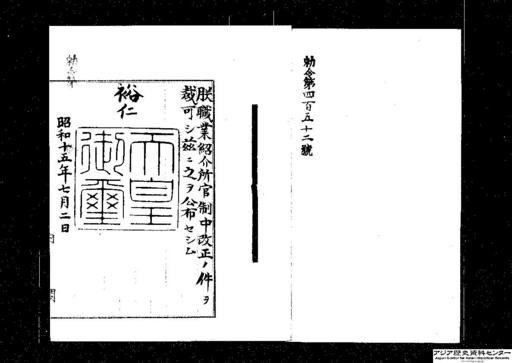 勅令第四百五十二號
朕職業紹介所官制中改正ノ件ヲ
裁可シ茲ニ之ヲ公布セシム
裕仁
天皇
御璽
昭和十五年七月二日
勅令第
アジア歴史資料センター
Japan Center for Asian Historical Records